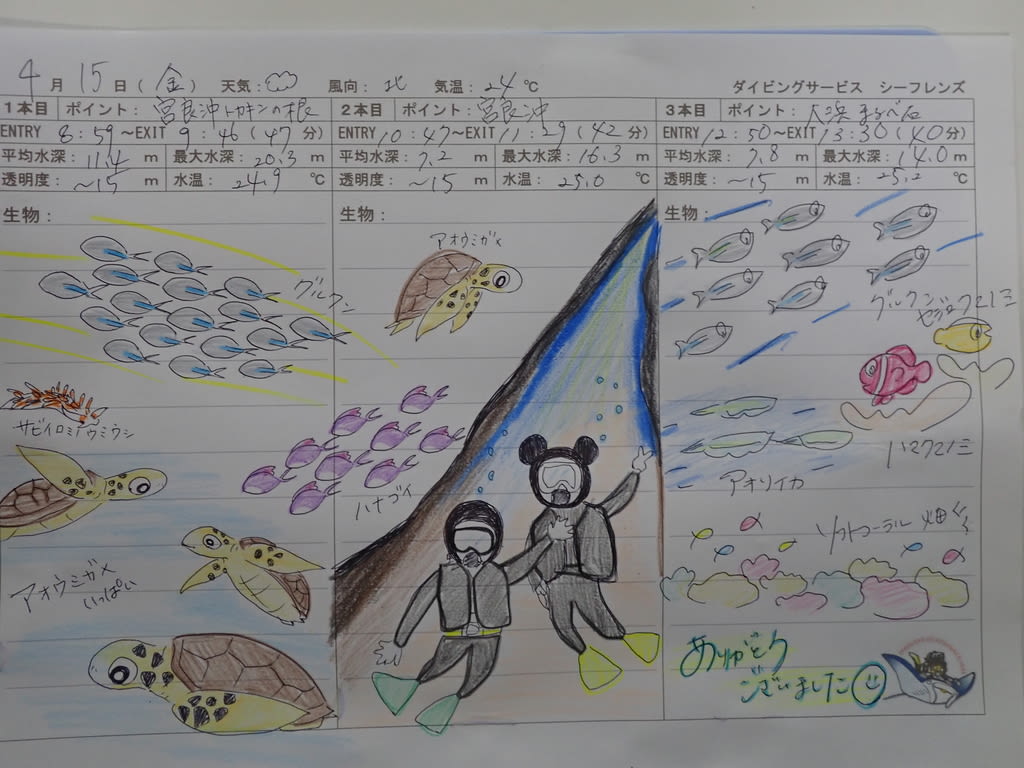 4月15日(金) 天気: 風向:北 気温:24℃ ダイビングサービス シーフレンズ
1本目 ポイント:宮良沖トカキンの根
ENTRY 8:59~EXIT 9:46(47分)
平均水深:11.4m 最大水深:20.3m
透明度:~15m 水温:24.9℃
生物:
グルクン
サビイロミノウミウシ
アオウミガメ
いっぱい
2本目 ポイント:宮良沖
ENTRY 10:47~EXIT 11:29(42分)
平均水深:7.2m 最大水深:16.3m
透明度:~15m 水温:25.0℃
生物:
アオウミガメ
ハナゴイ
3本目 ポイント:大浜
ENTRY 12:50~EXIT 13:30(40分)
平均水深:7.8m 最大水深:14.0m
透明度:~15m 水温:25.2℃
生物:
グルクン
セジロクマノミ
ハマクマノミ
アオリイカ
ソフトコーラル畑
ありがとう
ございました